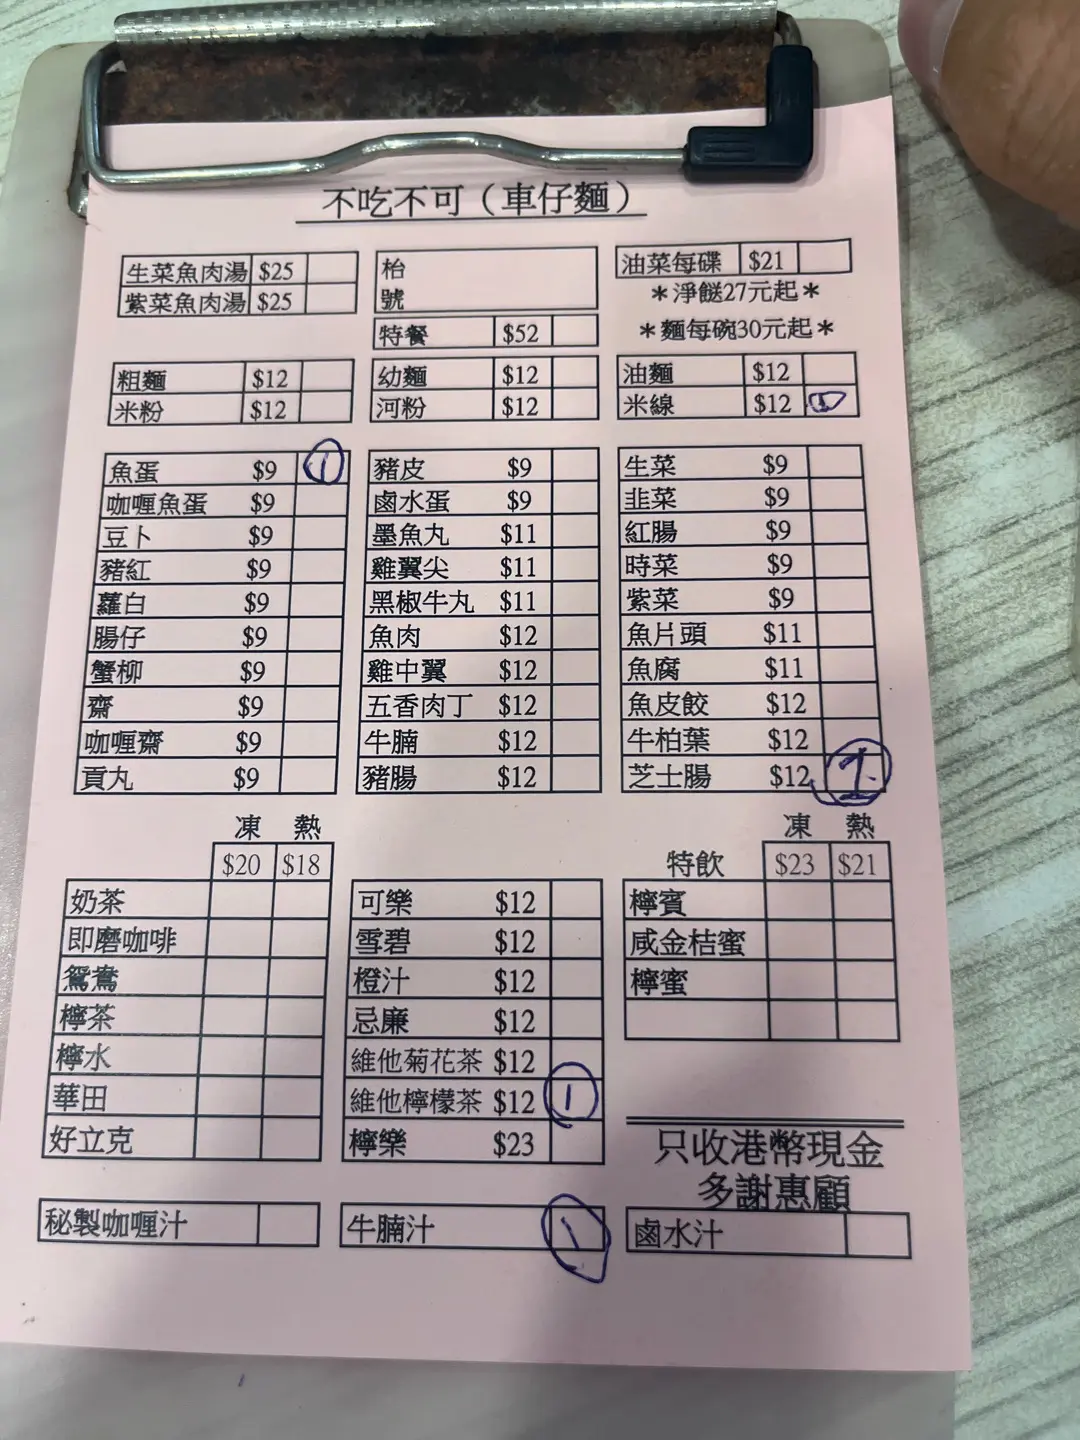 不吃不可（車仔麵）
生菜魚肉湯 $25
紫菜魚肉湯 $25
枱
號
特餐 $52
油菜每碟 $21
＊淨餸27元起＊
＊麵每碗30元起＊
粗麵 $12
米粉 $12
幼麵 $12
河粉 $12
油麵 $12
米線 $12 1
魚蛋 $9 1
咖喱魚蛋 $9
豆卜 $9
豬紅 $9
蘿白 $9
腸仔 $9
蟹柳 $9
齋 $9
咖喱齋 $9
貢丸 $9
豬皮 $9
鹵水蛋 $9
墨魚丸 $11
雞翼尖 $11
黑椒牛丸 $11
魚肉 $12
雞中翼 $12
五香肉丁 $12
牛腩 $12
豬腸 $12
生菜 $9
韭菜 $9
紅腸 $9
時菜 $9
紫菜 $9
魚片頭 $11
魚腐 $11
魚皮餃 $12
牛柏葉 $12
芝士腸 $12 1
凍 熱
$20 $18
奶茶
即磨咖啡
鴛鴦
檸茶
檸水
華田
好立克
可樂 $12
雪碧 $12
橙汁 $12
忌廉 $12
維他菊花茶 $12
維他檸檬茶 $12 1
檸樂 $23
凍 熱
特飲 $23 $21
檸賓
咸金桔蜜
檸蜜
只收港幣現金
多謝惠顧
秘製咖喱汁
牛腩汁 1
鹵水汁